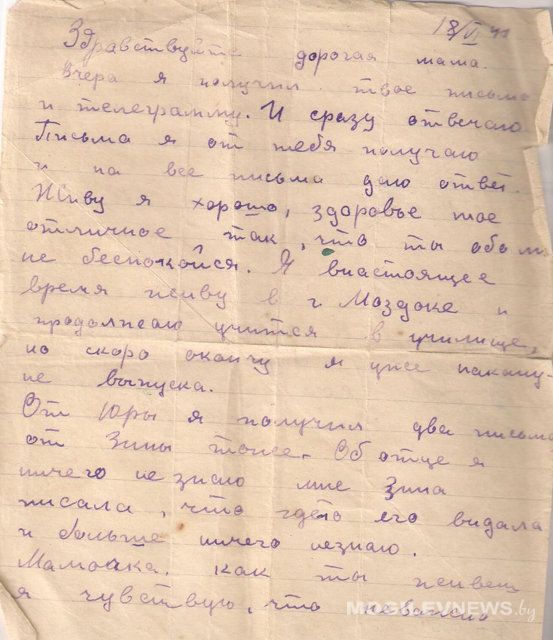 18/VI 41
Здравствуйте дорогая мама.
Вчера я получил твое письмо
и телеграмму. И сразу отвечаю
Письма я от тебя получаю
и на все письма даю ответ.
Живу я хорошо, здоровье мое
отличное так, что ты обо мне
не беспокойся. Я внастоящее
время живу в г. Моздоке и
продолжаю учится в училище,
но скоро окончу я уже накану-
не выпуска.
От Юры я получил два письма
от Зины тоже. Об отце я
ничего не знаю мне Зина
писала, что где-то его видала
и больше ничего незнаю.
Мамочка. как ты живеш
я чувствую, что неважно
MOGILEVNEWS.by